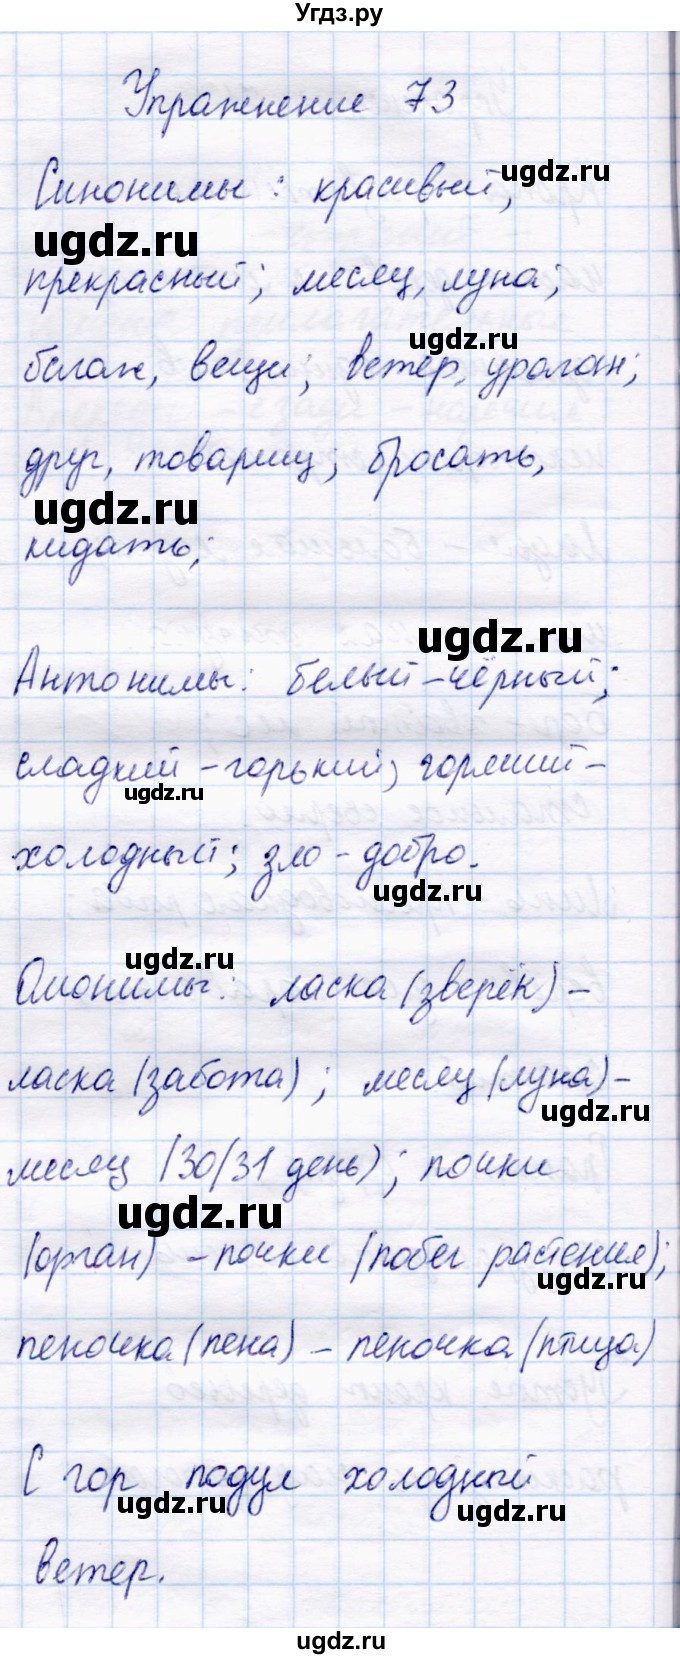 Угдз.ру
Упражнение 73
Синонимы: красивый,
ugdz.ru
ugdz.ru
прекрасный; месяц, луна;
ugdz.ru
багаж, вещи; ветер, ураган;
друг, товарищ; бросать,
ugdz.ru
кидать;
ugdz.ru
Антонимы: белый-чёрный;
сладкий-горький; горячий-
ugdz.ru
холодный; зло-добро.
ugdz.ru
ugdz.ru
Омонимы: ласка (зверёк)-
ласка (забота); месяц (луна)-
ugdz.ru
месяц (30/31 день); почки
ugdz.ru
(орган) - почки (побег растения);
ugdz.ru
пеночка (пена) - пеночка (птица)
С гор подул холодный
ugdz.ru
ugdz.ru
ветер.
ugdz.ru